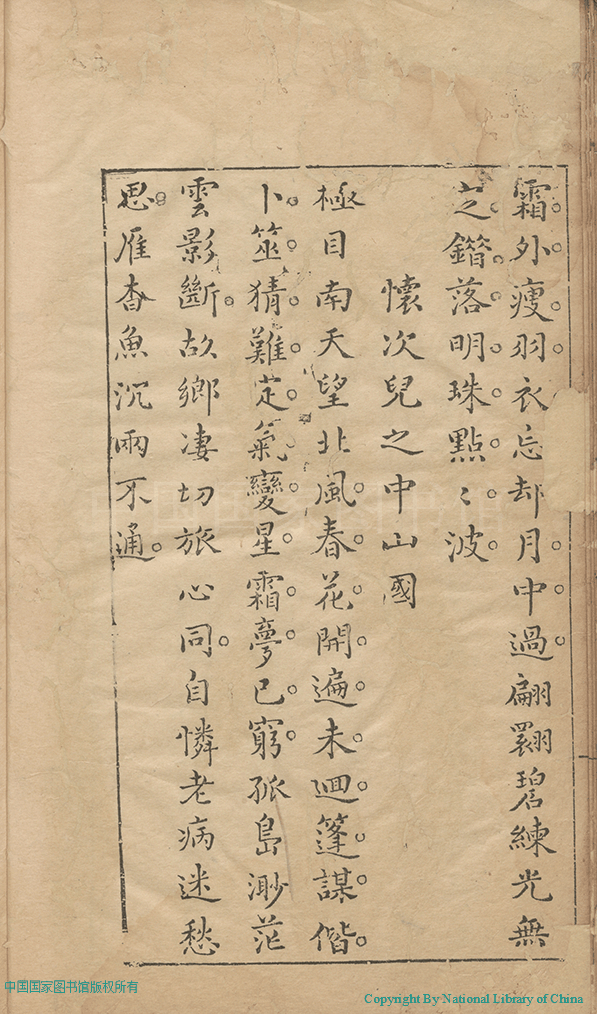 霜外痩羽衣忘却月中過翩翾碧練光無
定鐕落明珠點〻波
懷次兒之中山國
極目南天望北風春花開遍未廻篷謀偕
卜筮猜難定氣變星霜夢已窮孤島渺茫
雲影斷故鄉凄切旅心同自憐老病迷愁
思雁杳魚沉兩不通
中国国家图书馆版权所有
Copyright By National Library of China